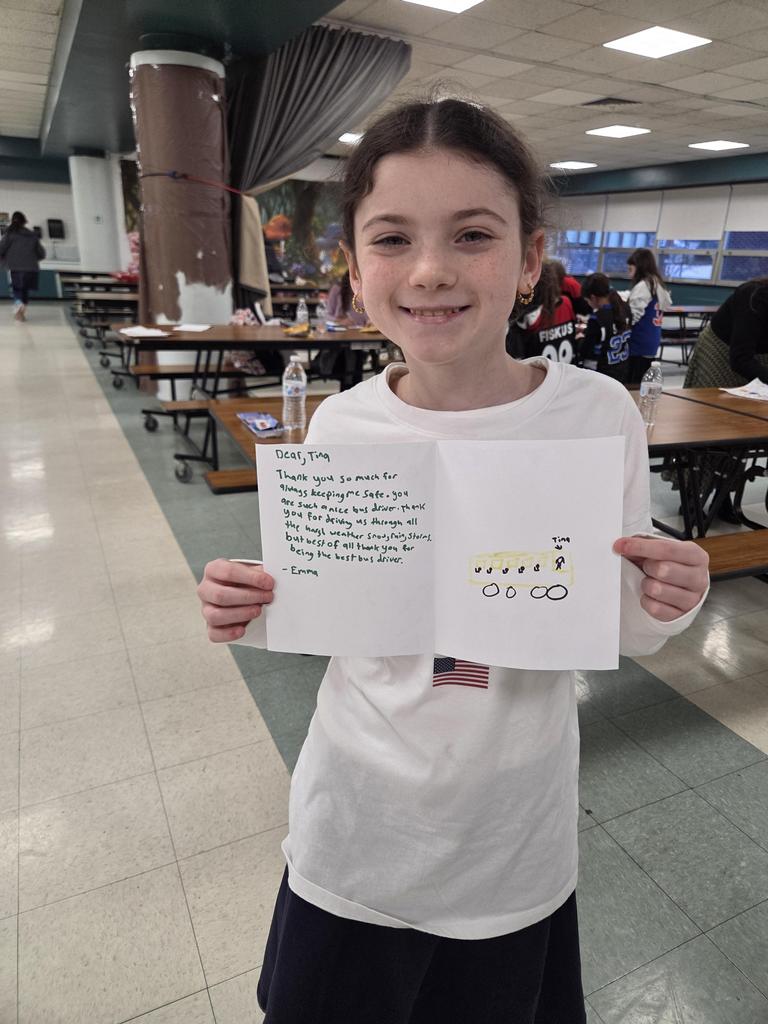 Dear, Tina
Thank you so much for
always keeping me safe. you
are such a nice bus driver. Thank
you for driving us through all
the harsh weather snow, rain, storms,
but best of all thank you for
being the best bus driver.
- Emma
Tina
FISKUS
00
23